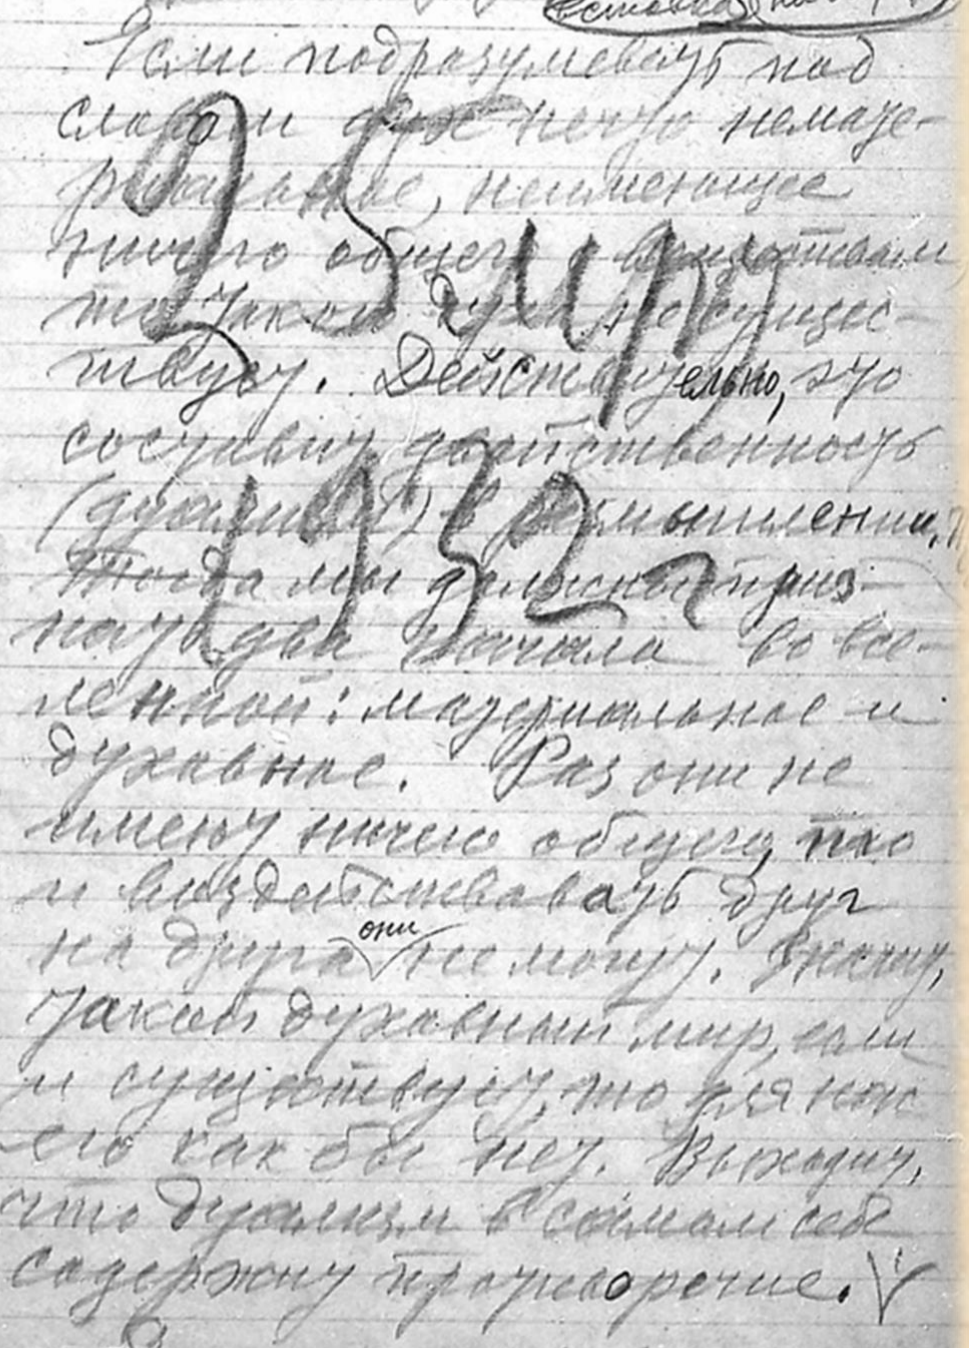 вставка
Если подразумевать под
словом дух нечто немате-
риальное, неимеющее
ничего общего с веществом
то такой дух не сущес-
твует. Действительно, это
составит двойственность
(дуализм) в размышлении.
Тогда мы должны приз-
нать два начала во все-
ленной: материальное и
духовное. Раз они не
имеют ничего общего, то
и воздействовать друг
на друга они не могут. Значит,
такой духовный мир, если
и существует, то для нас
его как бы нет. Выходит,
что дуализм в самом себе
содержит противоречие.
25 мая
1932 г